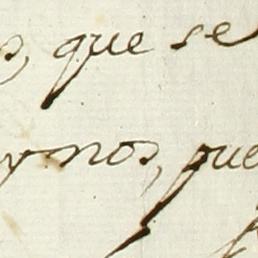 s, que se
ymos, pue